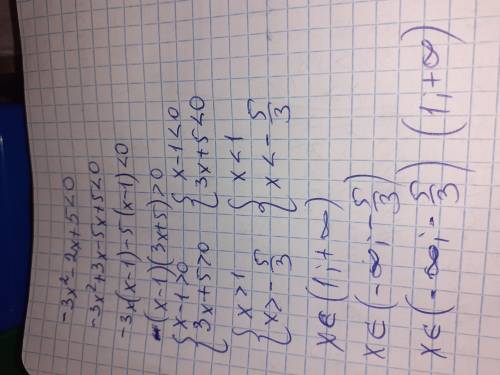 -3x²-2x+5<0
-3x²+3x-5x+5<0
-3x(x-1)-5(x-1)<0
(x-1)(3x+5)>0
{x-1>0 {x-1<0
{3x+5>0 {3x+5<0
{x>1 {x<1
{x>-5/3 {x<-5/3
x∈(1;+∞)
x∈(-∞;-5/3)
x∈(-∞;-5/3) (1;+∞)